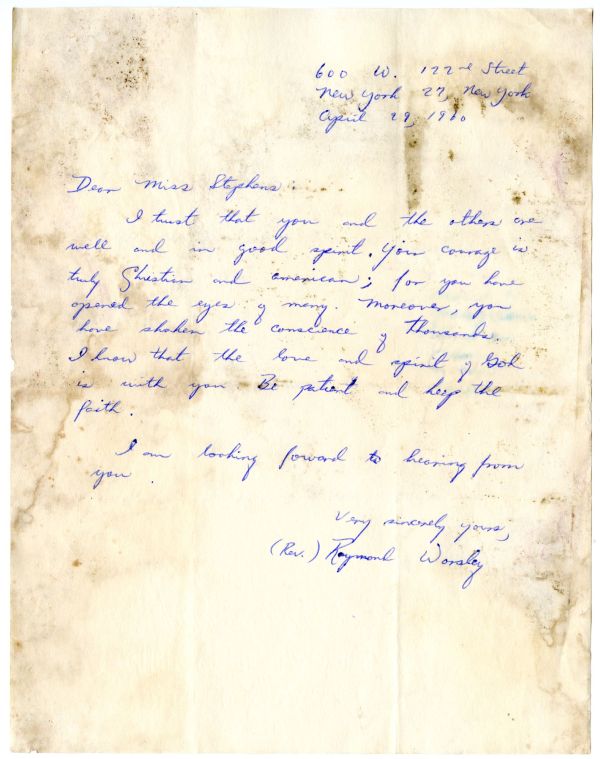 600 W. 122nd Street
New York 27, New York
April 29, 1960
Dear Miss Stephens:
I trust that you and the others are
well and in good spirit. Your courage is
truly Christian and american; for you have
opened the eyes of many. Moreover, you
have shaken the conscience of thousands.
I know that the love and spirit of God
is with you Be patient and keep the
faith.
I am looking forward to hearing from
you.
Very sincerely yours,
(Rev.) Raymond Worsley